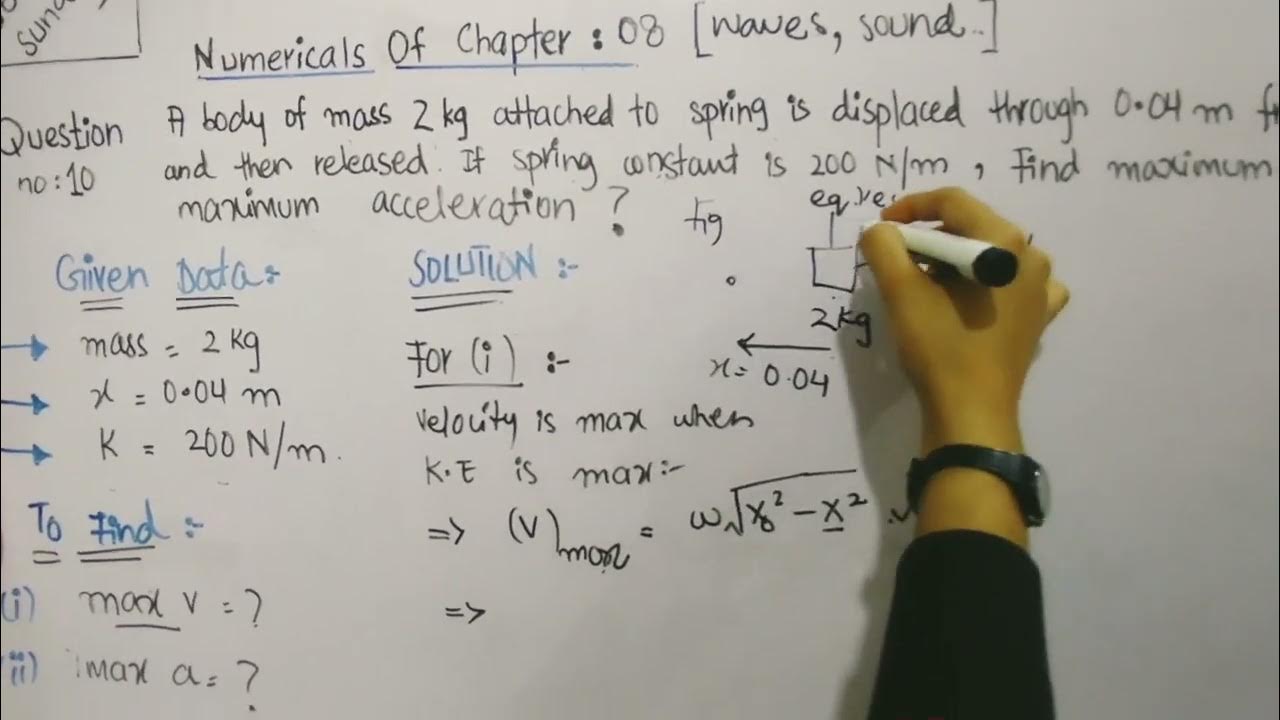 Sund
Numericals Of Chapter : 08 [waves, sound..]
Question
no : 10
A body of mass 2 kg attached to spring is displaced through 0.04 m
and then released. If spring constant is 200 N/m , Find maximum
maximum acceleration ?
fig
eq.
2kg
x = 0.04
Given Data:-
mass = 2 kg
x = 0.04 m
K = 200 N/m.
To Find :-
(i) max v = ?
ii) max a = ?
SOLUTION :-
For (i) :-
velocity is max when
K.E is max:-
=> (v)max = ω√x₀² - x²
=>